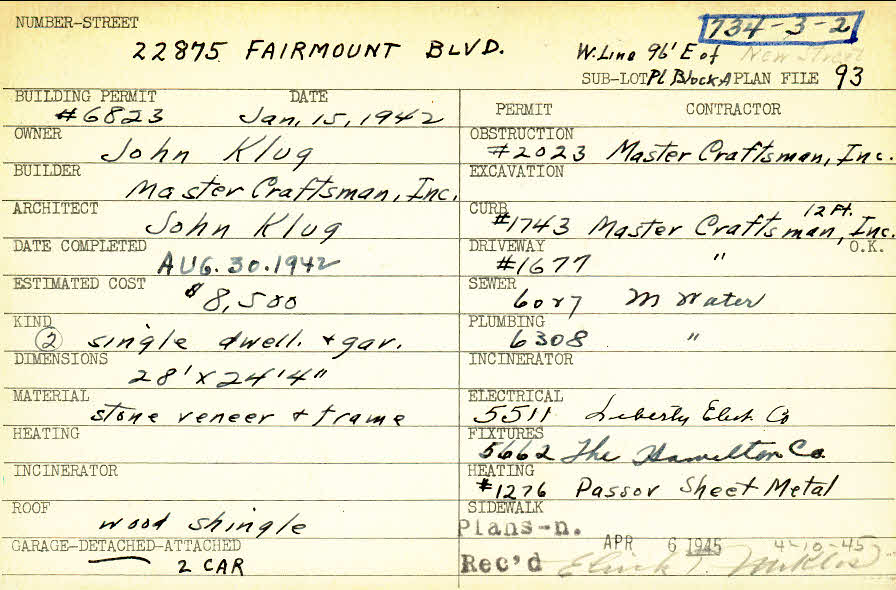 NUMBER-STREET
734-3-2
22875 FAIRMOUNT BLVD.
W. Line 96' E of New Street
SUB-LOT Pl Block A PLAN FILE 93
BUILDING PERMIT DATE
#6823 Jan, 15, 1942
OWNER
John Klug
BUILDER
Master Craftsman, Inc.
ARCHITECT
John Klug
DATE COMPLETED
AUG. 30. 1942
ESTIMATED COST
$8,500
KIND
2 single dwell. + gar.
DIMENSIONS
28' x 24'4"
MATERIAL
stone veneer + frame
HEATING
INCINERATOR
ROOF
wood shingle
GARAGE-DETACHED-ATTACHED
2 CAR
PERMIT CONTRACTOR
OBSTRUCTION
#2023 Master Craftsman, Inc.
EXCAVATION
CURB 12 Ft.
#1743 Master Craftsman, Inc.
DRIVEWAY O.K.
#1677 "
SEWER
6027 M Water
PLUMBING
6308 "
INCINERATOR
ELECTRICAL
5511 Liberty Elect. Co
FIXTURES
5662 The Hamilton Co
HEATING
#1276 Passov Sheet Metal
SIDEWALK
Plans-n.
APR 6 1945 4-10-45
Rec'd